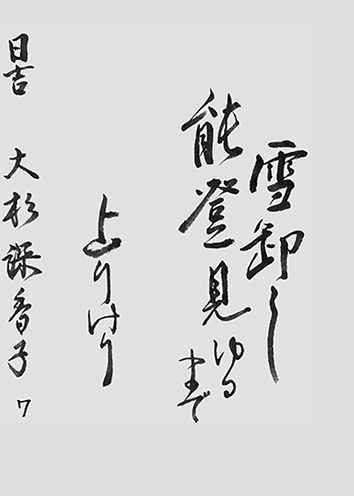 雪卸し
能登見ゆるまで
上りけり
日吉 大杉謙香子 7